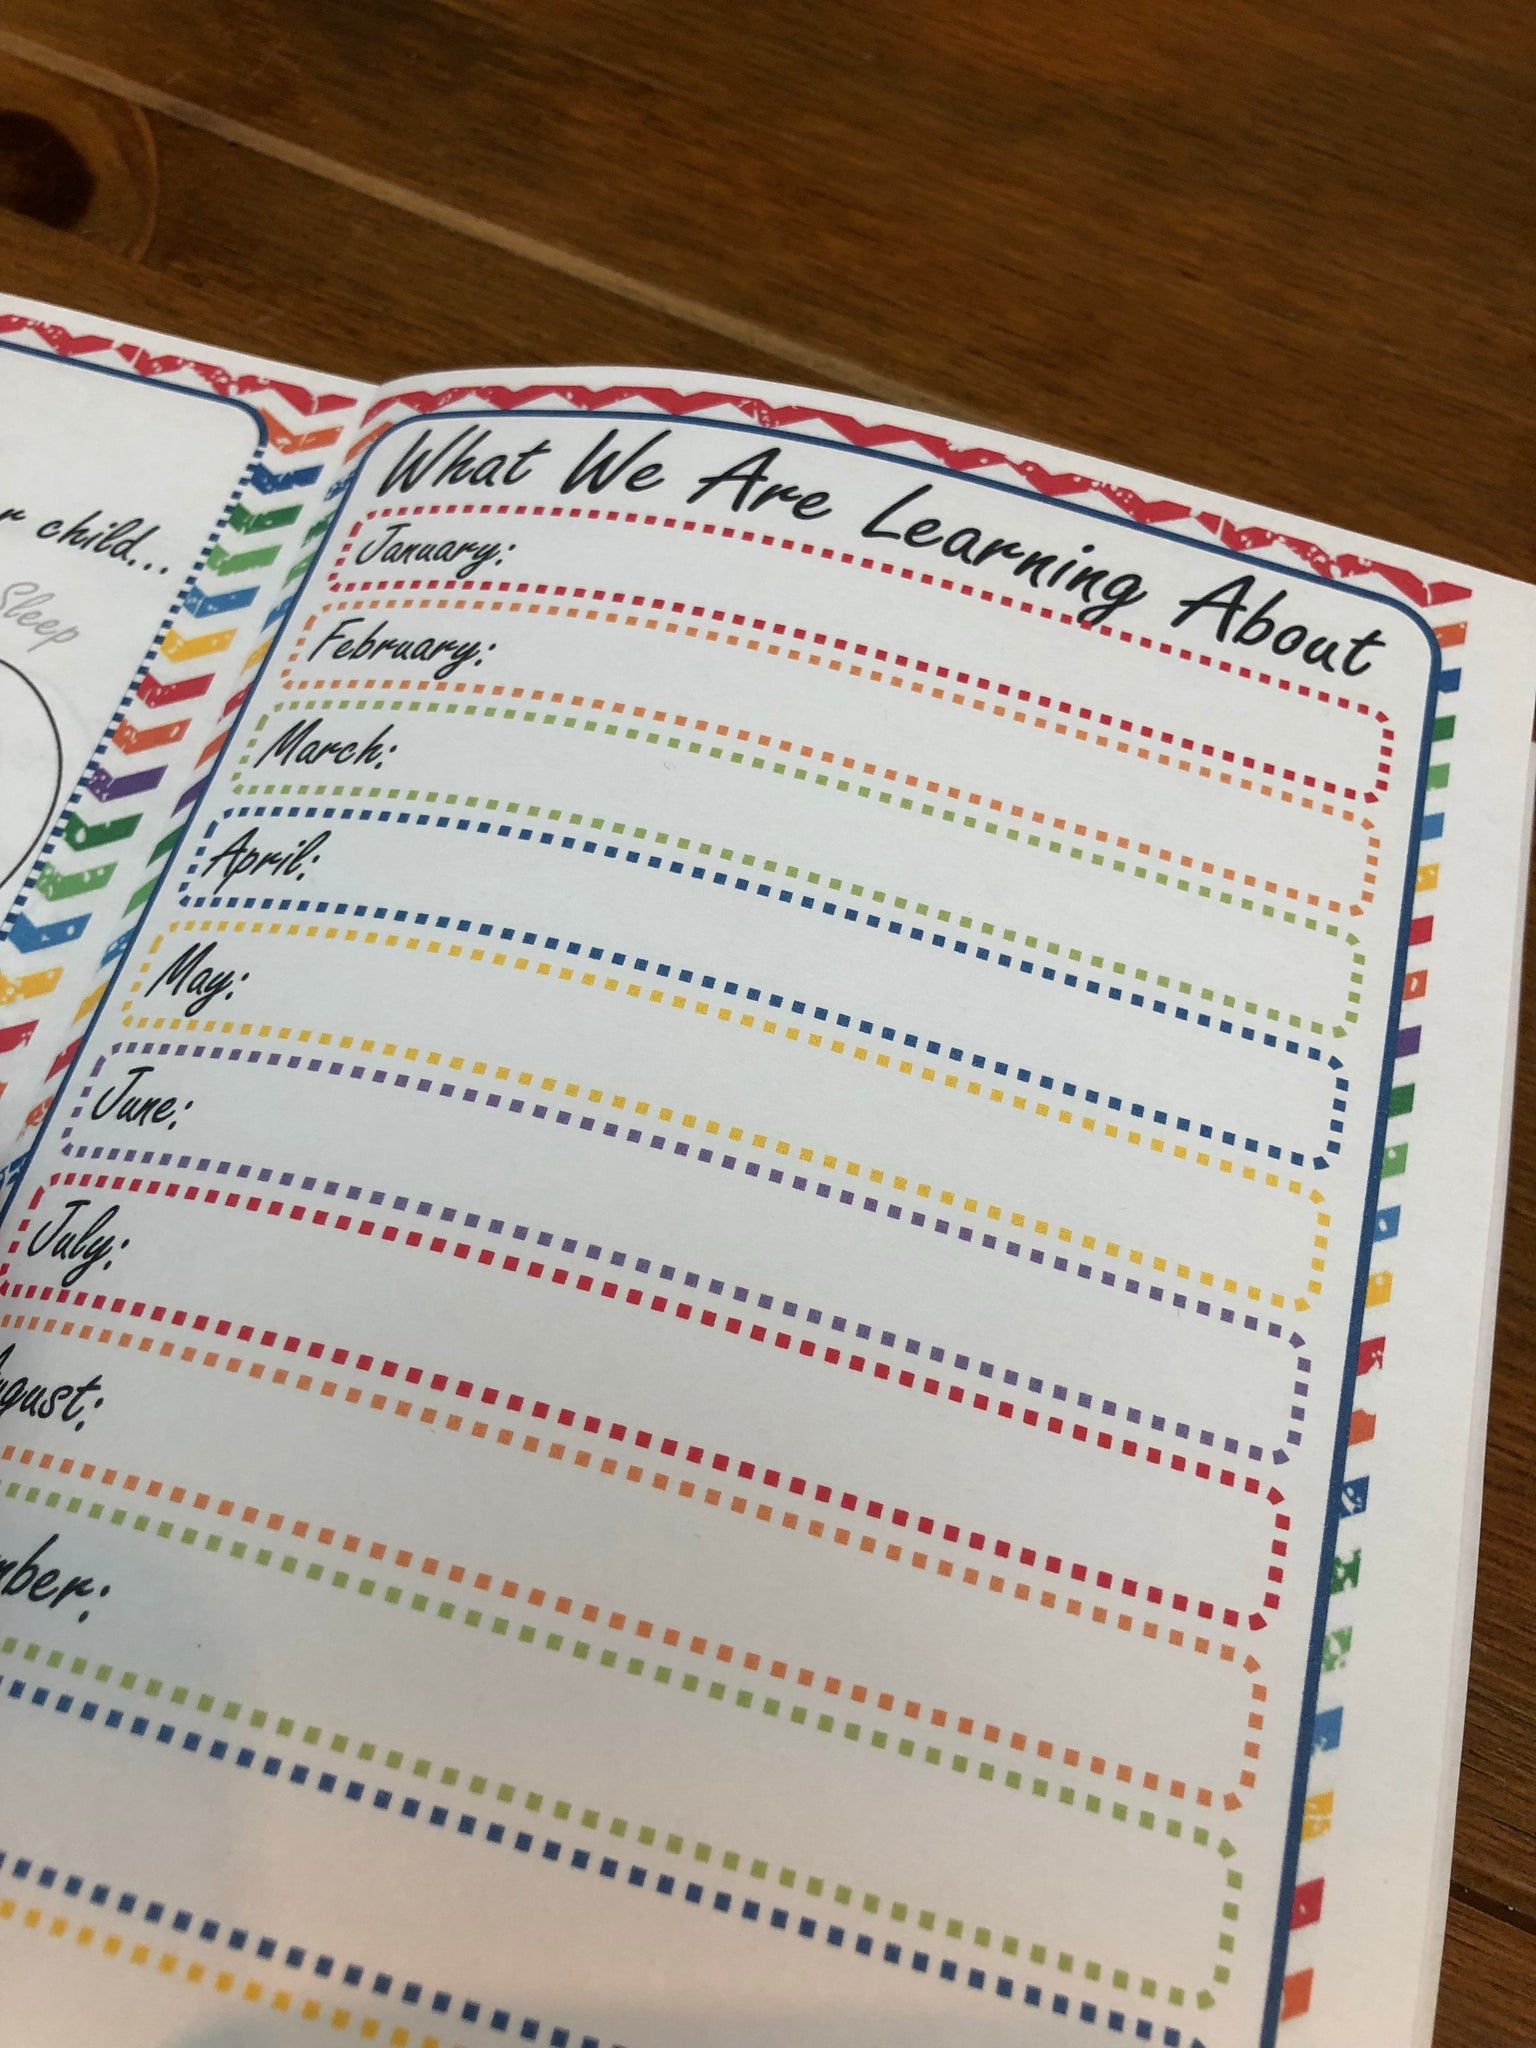 r child...
Sleep
What We Are Learning About
January:
February:
March:
April:
May:
June:
July:
ugust:
mber: